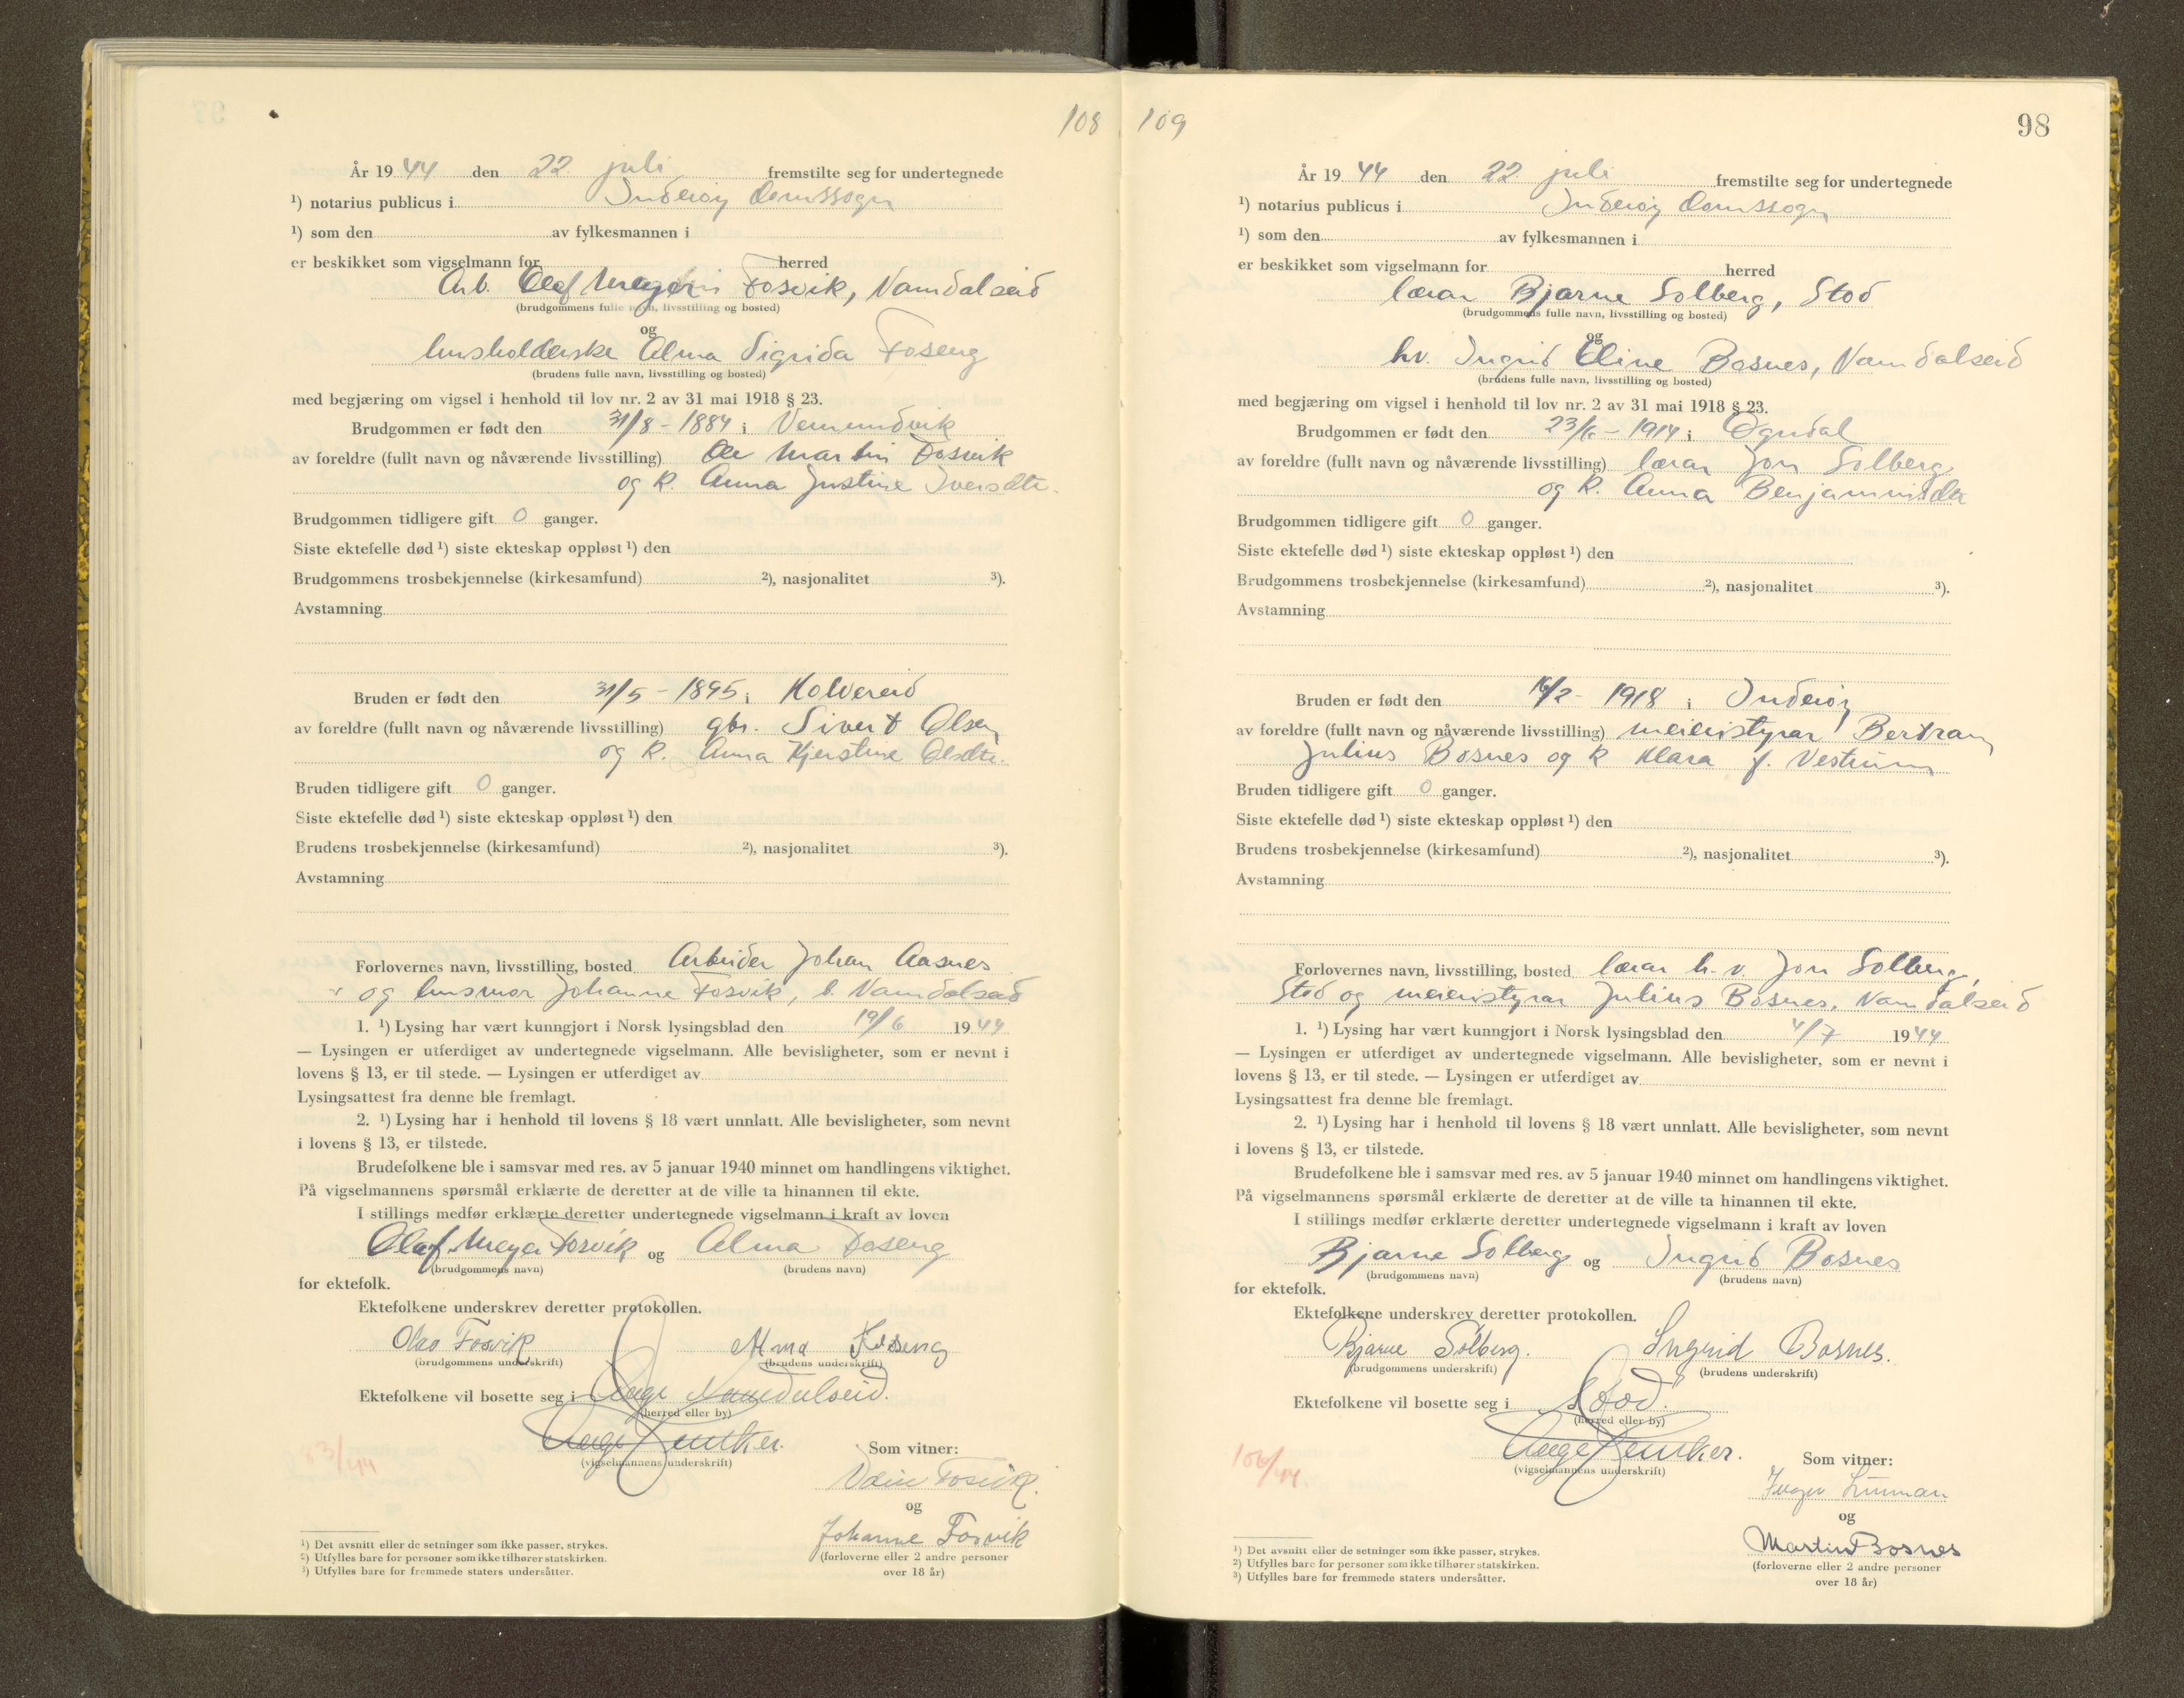 108
År 1944 den 22 juli fremstilte seg for undertegnede
¹) notarius publicus i Inderøy domssogn
¹) som den av fylkesmannen i
er beskikket som vigselmann for herred
Arb. Olaf Fosvik, Namdalseid
(brudgommens fulle navn, livsstilling og bosted)
og
husholderske Alma Sigrida Foseng
(brudens fulle navn, livsstilling og bosted)
med begjæring om vigsel i henhold til lov nr. 2 av 31 mai 1918 § 23.
Brudgommen er født den 31/8 - 1884 i Vemundvik
av foreldre (fullt navn og nåværende livsstilling) Ole Martin Fosvik
og k. Anna Justine Iversdtr.
Brudgommen tidligere gift 0 ganger.
Siste ektefelle død ¹) siste ekteskap oppløst ¹) den
Brudgommens trosbekjennelse (kirkesamfund) ²), nasjonalitet ³).
Avstamning
Bruden er født den 31/5 - 1895 i Kolvereid
av foreldre (fullt navn og nåværende livsstilling) gbr. Sivert Olsen
og k. Anna Kjerstine Olsdtr.
Bruden tidligere gift 0 ganger.
Siste ektefelle død ¹) siste ekteskap oppløst ¹) den
Brudens trosbekjennelse (kirkesamfund) ²), nasjonalitet ³).
Avstamning
Forlovernes navn, livsstilling, bosted Arbeider Johan Aasnes
og husmor Johanne Fosvik, b. Namdalseid
1. ¹) Lysing har vært kunngjort i Norsk lysingsblad den 19/6 1944
— Lysingen er utferdiget av undertegnede vigselmann. Alle bevisligheter, som er nevnt i
lovens § 13, er til stede. — Lysingen er utferdiget av
Lysingsattest fra denne ble fremlagt.
2. ¹) Lysing har i henhold til lovens § 18 vært unnlatt. Alle bevisligheter, som nevnt
i lovens § 13, er tilstede.
Brudefolkene ble i samsvar med res. av 5 januar 1940 minnet om handlingens viktighet.
På vigselmannens spørsmål erklærte de deretter at de ville ta hinannen til ekte.
I stillings medfør erklærte deretter undertegnede vigselmann i kraft av loven
Olaf Meyer Fosvik og Alma Foseng
(brudgommens navn) (brudens navn)
for ektefolk.
Ektefolkene underskrev deretter protokollen.
Fosvik Alma Foseng
(brudgommens underskrift) (brudens underskrift)
Ektefolkene vil bosette seg i Namdalseid.
(herred eller by)
(vigselmannens underskrift)
Som vitner:
83/44
Fosvik.
og
Johanne Fosvik
(forloverne eller 2 andre personer
over 18 år)
¹) Det avsnitt eller de setninger som ikke passer, strykes.
²) Utfylles bare for personer som ikke tilhører statskirken.
³) Utfylles bare for fremmede staters undersåtter.
109
98
År 1944 den 22 juli fremstilte seg for undertegnede
¹) notarius publicus i Inderøy domssogn
¹) som den av fylkesmannen i
er beskikket som vigselmann for herred
lærar Bjarne Solberg, Stod
(brudgommens fulle navn, livsstilling og bosted)
og
hv. Ingrid Eline Bosnes, Namdalseid
(brudens fulle navn, livsstilling og bosted)
med begjæring om vigsel i henhold til lov nr. 2 av 31 mai 1918 § 23.
Brudgommen er født den 23/6 - 1914 i Ogndal
av foreldre (fullt navn og nåværende livsstilling) lærar Jon Solberg
og k. Anna Benjaminsdtr
Brudgommen tidligere gift 0 ganger.
Siste ektefelle død ¹) siste ekteskap oppløst ¹) den
Brudgommens trosbekjennelse (kirkesamfund) ²), nasjonalitet ³).
Avstamning
Bruden er født den 16/2 - 1918 i Inderøy
av foreldre (fullt navn og nåværende livsstilling) meieristyrar Bertram
Julius Bosnes og k Klara f. Vestrum
Bruden tidligere gift 0 ganger.
Siste ektefelle død ¹) siste ekteskap oppløst ¹) den
Brudens trosbekjennelse (kirkesamfund) ²), nasjonalitet ³).
Avstamning
Forlovernes navn, livsstilling, bosted lærar h. v. Jon Solberg,
Stod og meieristyrar Julius Bosnes, Namdalseid
1. ¹) Lysing har vært kunngjort i Norsk lysingsblad den 4/7 1944
— Lysingen er utferdiget av undertegnede vigselmann. Alle bevisligheter, som er nevnt i
lovens § 13, er til stede. — Lysingen er utferdiget av
Lysingsattest fra denne ble fremlagt.
2. ¹) Lysing har i henhold til lovens § 18 vært unnlatt. Alle bevisligheter, som nevnt
i lovens § 13, er tilstede.
Brudefolkene ble i samsvar med res. av 5 januar 1940 minnet om handlingens viktighet.
På vigselmannens spørsmål erklærte de deretter at de ville ta hinannen til ekte.
I stillings medfør erklærte deretter undertegnede vigselmann i kraft av loven
Bjarne Solberg og Ingrid Bosnes
(brudgommens navn) (brudens navn)
for ektefolk.
Ektefolkene underskrev deretter protokollen.
Bjarne Solberg. Ingrid Bosnes.
(brudgommens underskrift) (brudens underskrift)
Ektefolkene vil bosette seg i Stod.
(herred eller by)
(vigselmannens underskrift)
Som vitner:
106/44.
og
Martin Bosnes
(forloverne eller 2 andre personer
over 18 år)
¹) Det avsnitt eller de setninger som ikke passer, strykes.
²) Utfylles bare for personer som ikke tilhører statskirken.
³) Utfylles bare for fremmede staters undersåtter.